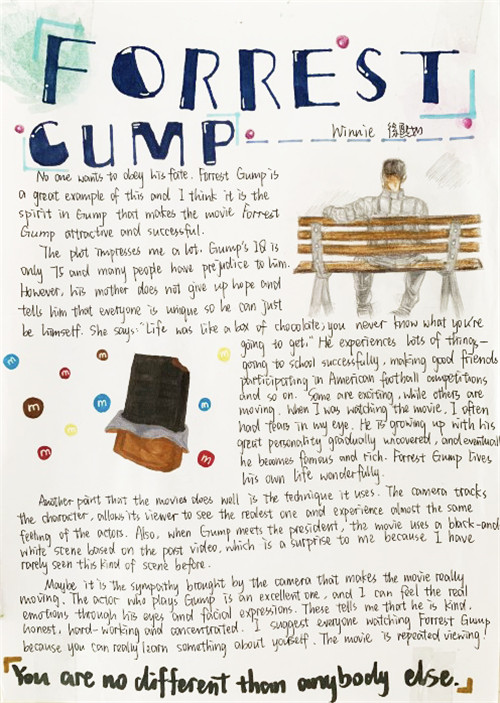 FORREST
GUMP
Winnie
No one wants to obey his fate. Forrest Gump is
a great example of this and I think it is the
spirit in Gump that makes the movie Forrest
Gump attractive and successful.
The plot impresses me a lot. Gump's IQ is
only 75 and many people have prejudice to him.
However, his mother does not give up hope and
tells him that everyone is unique so he can just
be himself. She says: "Life was like a box of chocolate, you never know what you're
going to get." He experiences lots of things—
going to school successfully, making good friends
participating in American football competitions
and so on. Some are exciting, while others are
moving. When I was watching the movie, I often
had tears in my eye. He is growing up with his
great personality gradually uncovered, and eventually
he becomes famous and rich. Forrest Gump lives
his own life wonderfully.
Another point that the movies does well is the technique it uses. The camera tracks
the character, allows its viewer to see the realest one and experience almost the same
feeling of the actors. Also, when Gump meets the president, the movie uses a black-and
white scene based on the past video, which is a surprise to me because I have
rarely seen this kind of scene before.
Maybe it is the sympathy brought by the camera that makes the movie really
moving. The actor who plays Gump is an excellent one, and I can feel the real
emotions through his eyes and facial expressions. These tells me that he is kind,
honest, hard-working and concentrated. I suggest everyone watching Forrest Gump
because you can really learn something about youself. The movie is repeated viewing!
You are no different than anybody else.